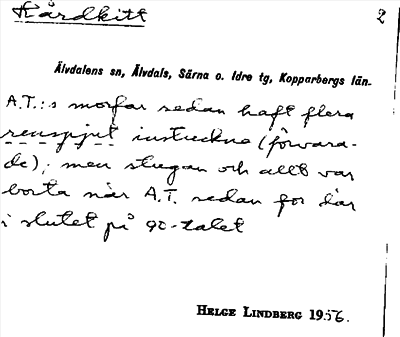 Hårdkitt 2
Älvdalens sn, Älvdals, Särna o. Idre tg, Kopparbergs län.
A.T.:s morfar sedan haft flera
renspjut instuckna (förvara-
de); men stugan och allt var
borta när A.T. sedan for där
i slutet på 90-talet
HELGE LINDBERG 1956.